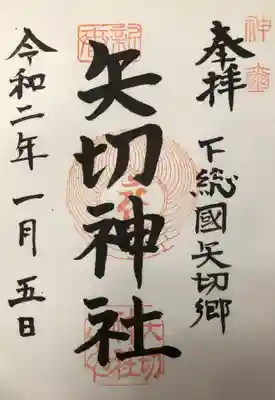 奉拝
下総國矢切郷
矢切神社
令和二年一月五日